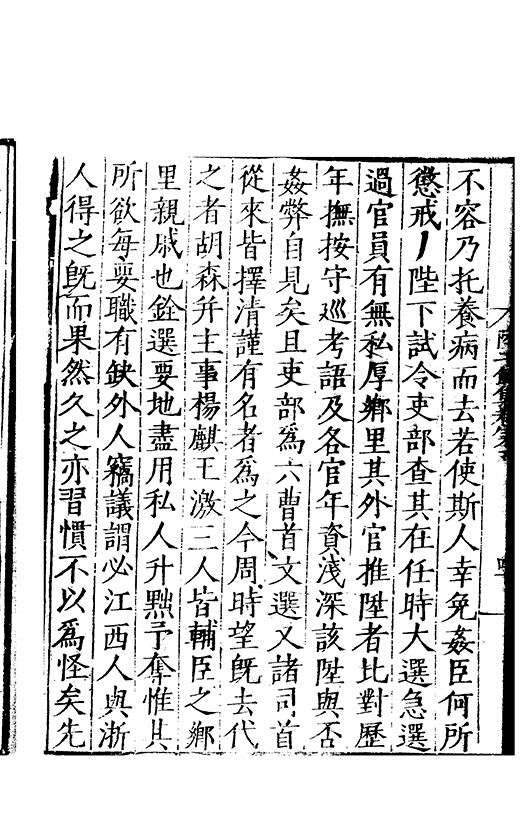 不容乃托養病而去若使斯人幸免姦臣何所
懲戒丨陛下試令吏部查其在任時大選急選
過官員有無私厚鄉里其外官推陞者比對歷
年撫按守巡考語及各官年資淺深該陞與否
姦弊自見矣且吏部為六曹首文選又諸司首
從來皆擇清謹有名者為之今周時望旣去代
之者胡森幷主事楊麒王激三人皆輔臣之鄉
里親戚也銓選要地盡用私人升黜予奪惟其
所欲每要職有缺外人竊議謂必江西人與浙
人得之旣而果然久之亦習慣不以為怪矣先